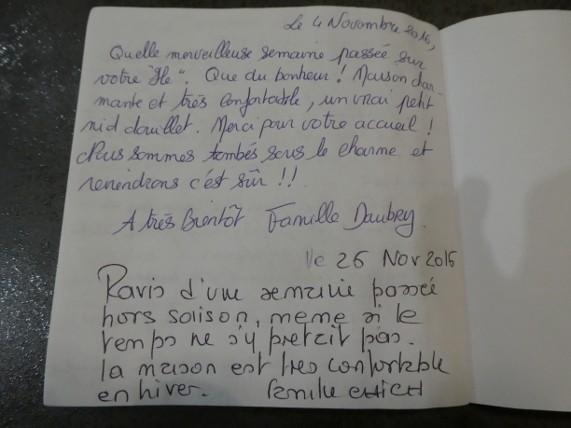 Le 4 Novembre 2016,
Quelle merveilleuse semaine passée sur
votre "Île". Que du bonheur ! Maison char-
mante et très confortable, un vrai petit
nid douillet. Merci pour votre accueil !
Nous sommes tombés sous le charme et
reviendrons c'est sûr !!
A très Bientôt Famille Daubry.
le 26 Nov 2016
Ravis d'une semaine passée
hors saison, meme si le
temps ne s'y pretait pas.
la maison est tres confortable
en hiver. famille CHICH